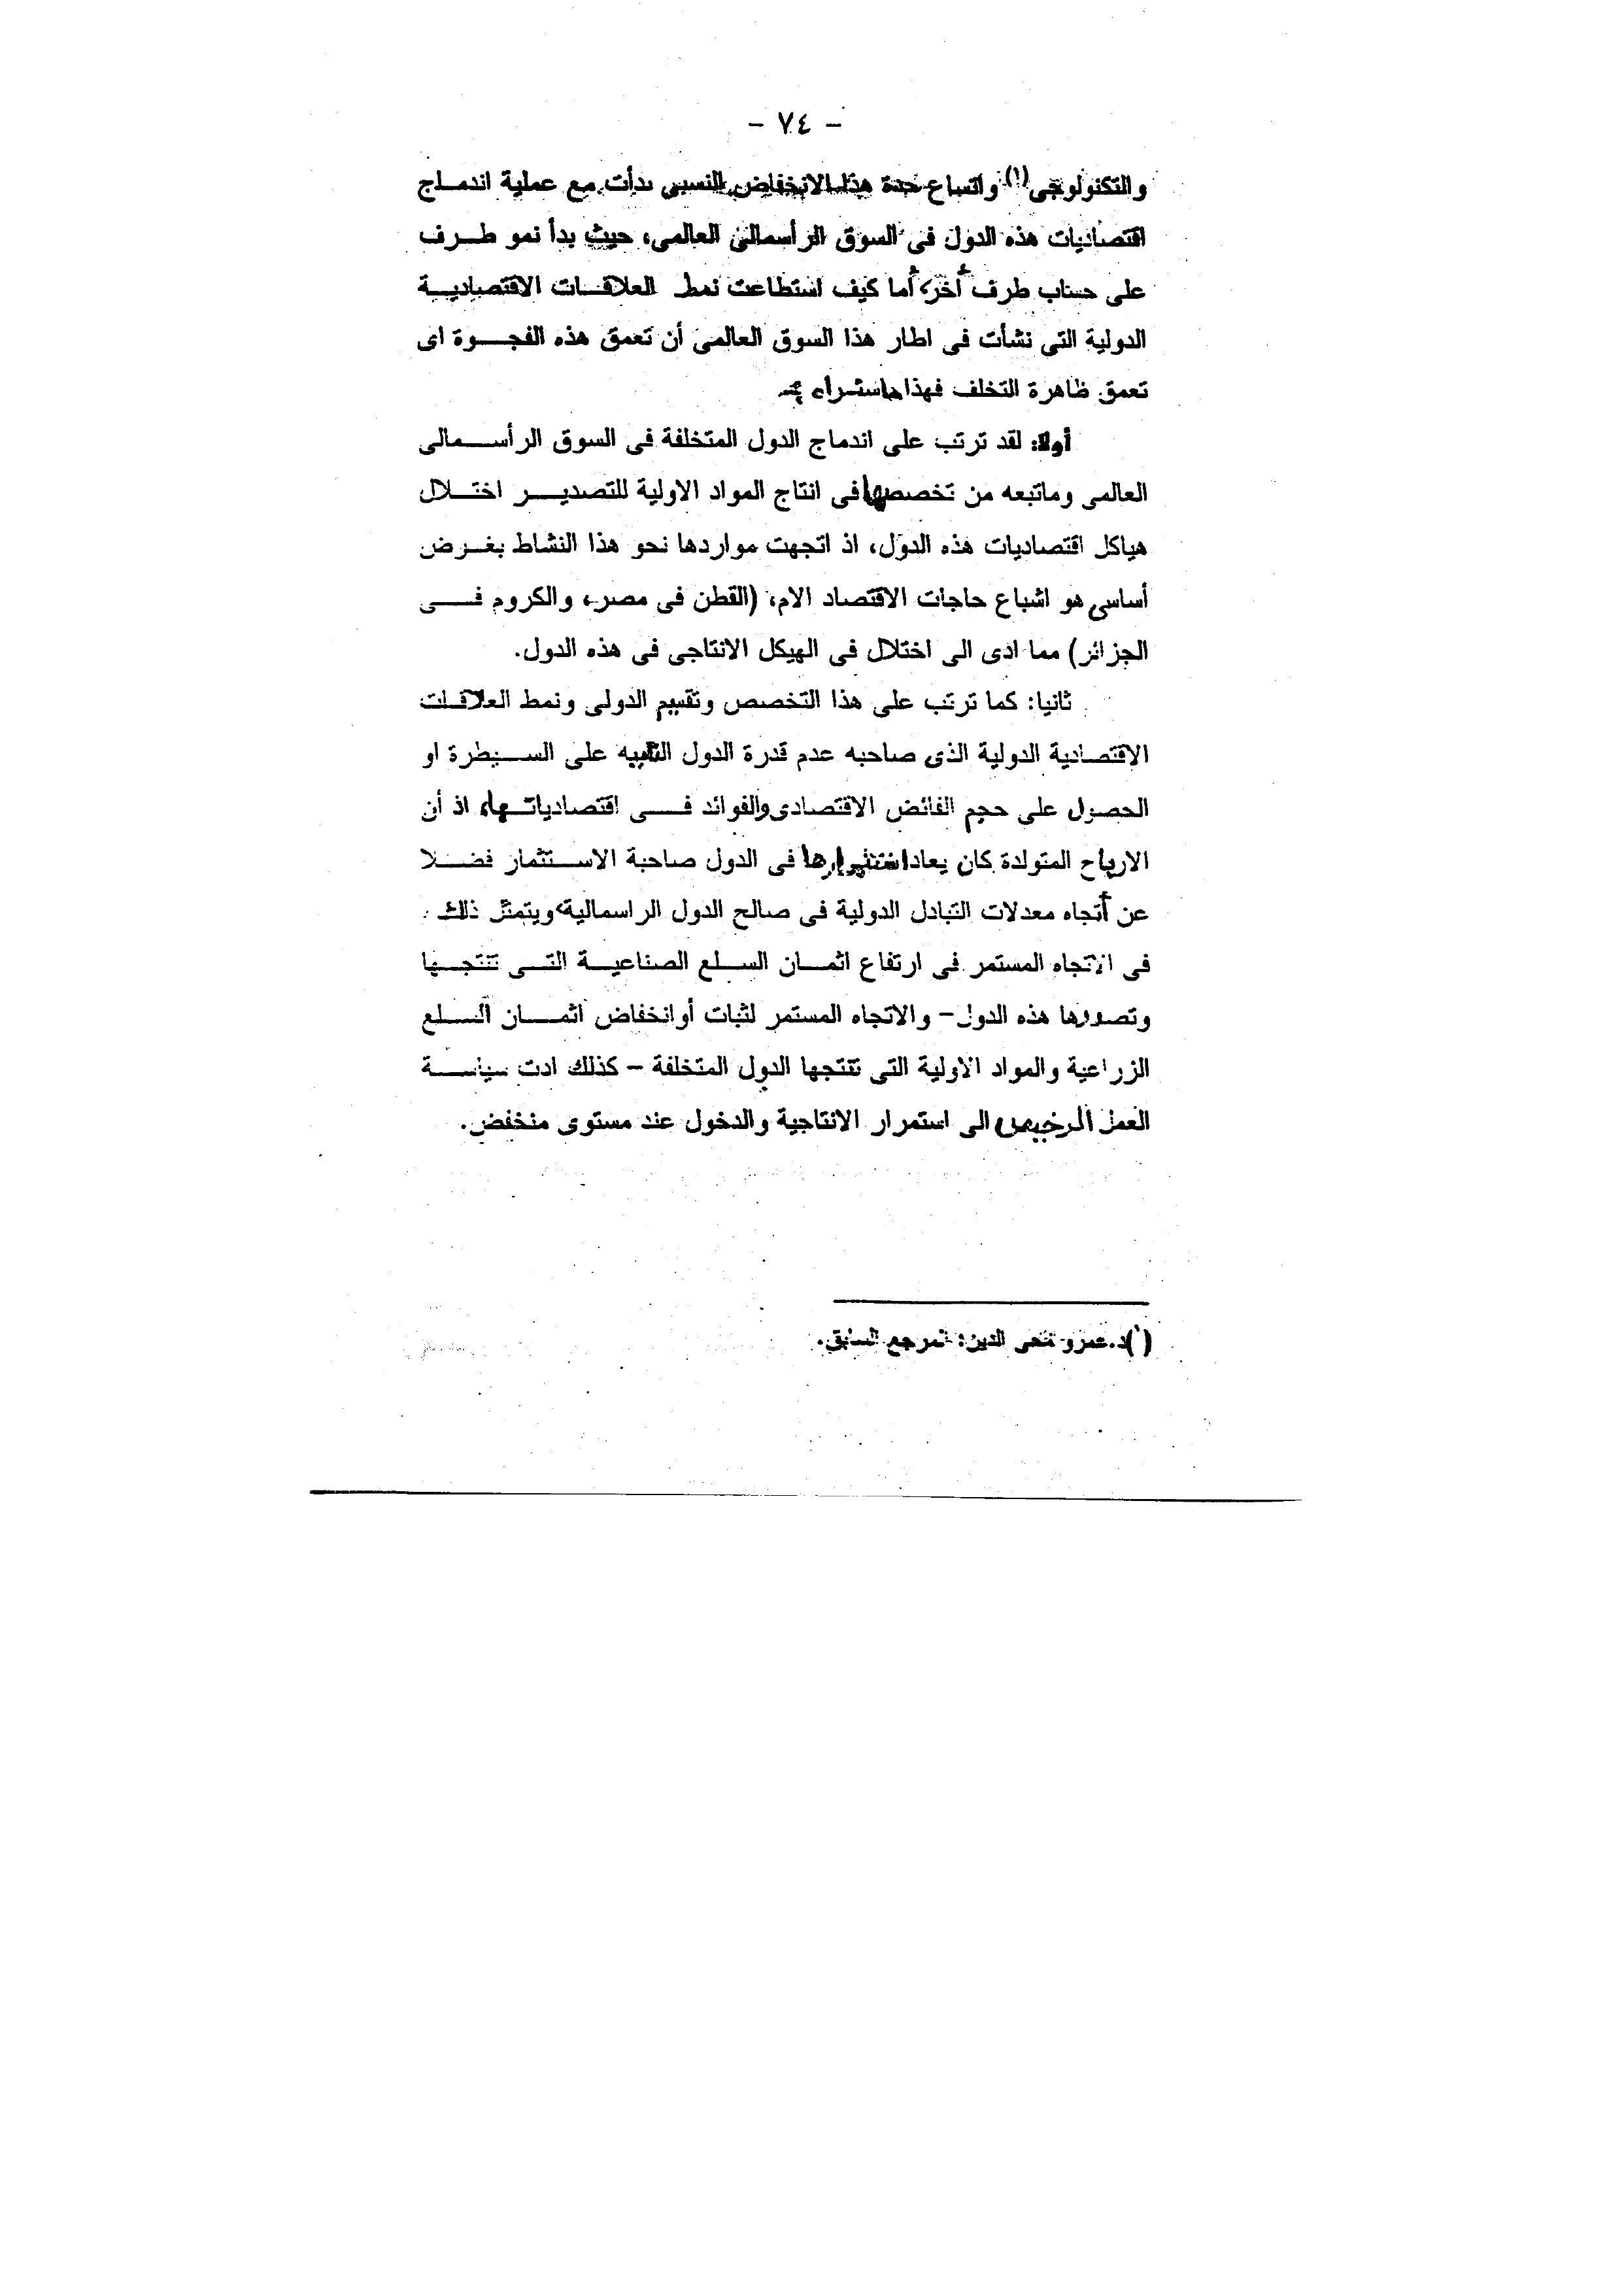 - ٧٤ -
والتكنولوجى (١) واتساع حدة هذا الانخفاض النسبى بدأت مع عملية اندماج
اقتصاديات هذه الدول فى السوق الرأسمالى العالمى، حيث بدأ نمو طرف
على حساب طرف أخر، أما كيف استطاعت نمط العلاقات الاقتصادية
الدولية التى نشأت فى اطار هذا السوق العالمى أن تعمق هذه الفجوة اى
تعمق ظاهرة التخلف فهذا ماسنراه
أولا: لقد ترتب على اندماج الدول المتخلفة فى السوق الرأسمالى
العالمى وماتبعه من تخصصها فى انتاج المواد الاولية للتصدير اختلال
هياكل اقتصاديات هذه الدول، اذ اتجهت مواردها نحو هذا النشاط بغرض
أساسى هو اشباع حاجات الاقتصاد الام، (القطن فى مصر، والكروم فى
الجزائر) مما ادى الى اختلال فى الهيكل الانتاجى فى هذه الدول.
ثانيا: كما ترتب على هذا التخصص وتقسيم الدولى ونمط العلاقات
الاقتصادية الدولية الذى صاحبه عدم قدرة الدول على السيطرة او
الحصول على حجم الفائض الاقتصادى والفوائد فى اقتصادياتها، اذ أن
الارباح المتولدة كان يعاد استثمارها فى الدول صاحبة الاستثمار فضلا
عن أتجاه معدلات التبادل الدولية فى صالح الدول الراسمالية، ويتمثل ذلك
فى الاتجاه المستمر فى ارتفاع اثمان السلع الصناعية التى تنتجها
وتصدرها هذه الدول- والاتجاه المستمر لثبات أوانخفاض اثمان السلع
الزراعية والمواد الاولية التى تنتجها الدول المتخلفة - كذلك ادت سياسة
العمل الرخيص الى استمرار الانتاجية والدخول عند مستوى منخفض.
(١)د.عمرو محى الدين: المرجع السابق.